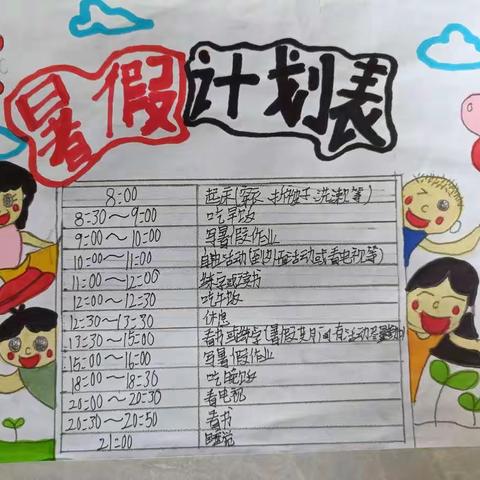 暑假计划表
8:00 起床(穿衣、折被子、洗漱等)
8:30～9:00 吃早饭
9:00～10:00 写暑假作业
10:00～11:00 自由活动(到外面活动或看电视等)
11:00～12:00 练字或读书
12:00～12:30 吃午饭
12:30～13:30 休息
13:30～15:00 看书或练字(暑假其间有活动
15:00～16:00 写暑假作业
18:00～18:30 吃晚饭
20:00～20:30 看电视
20:30～20:50 看书
21:00 睡觉